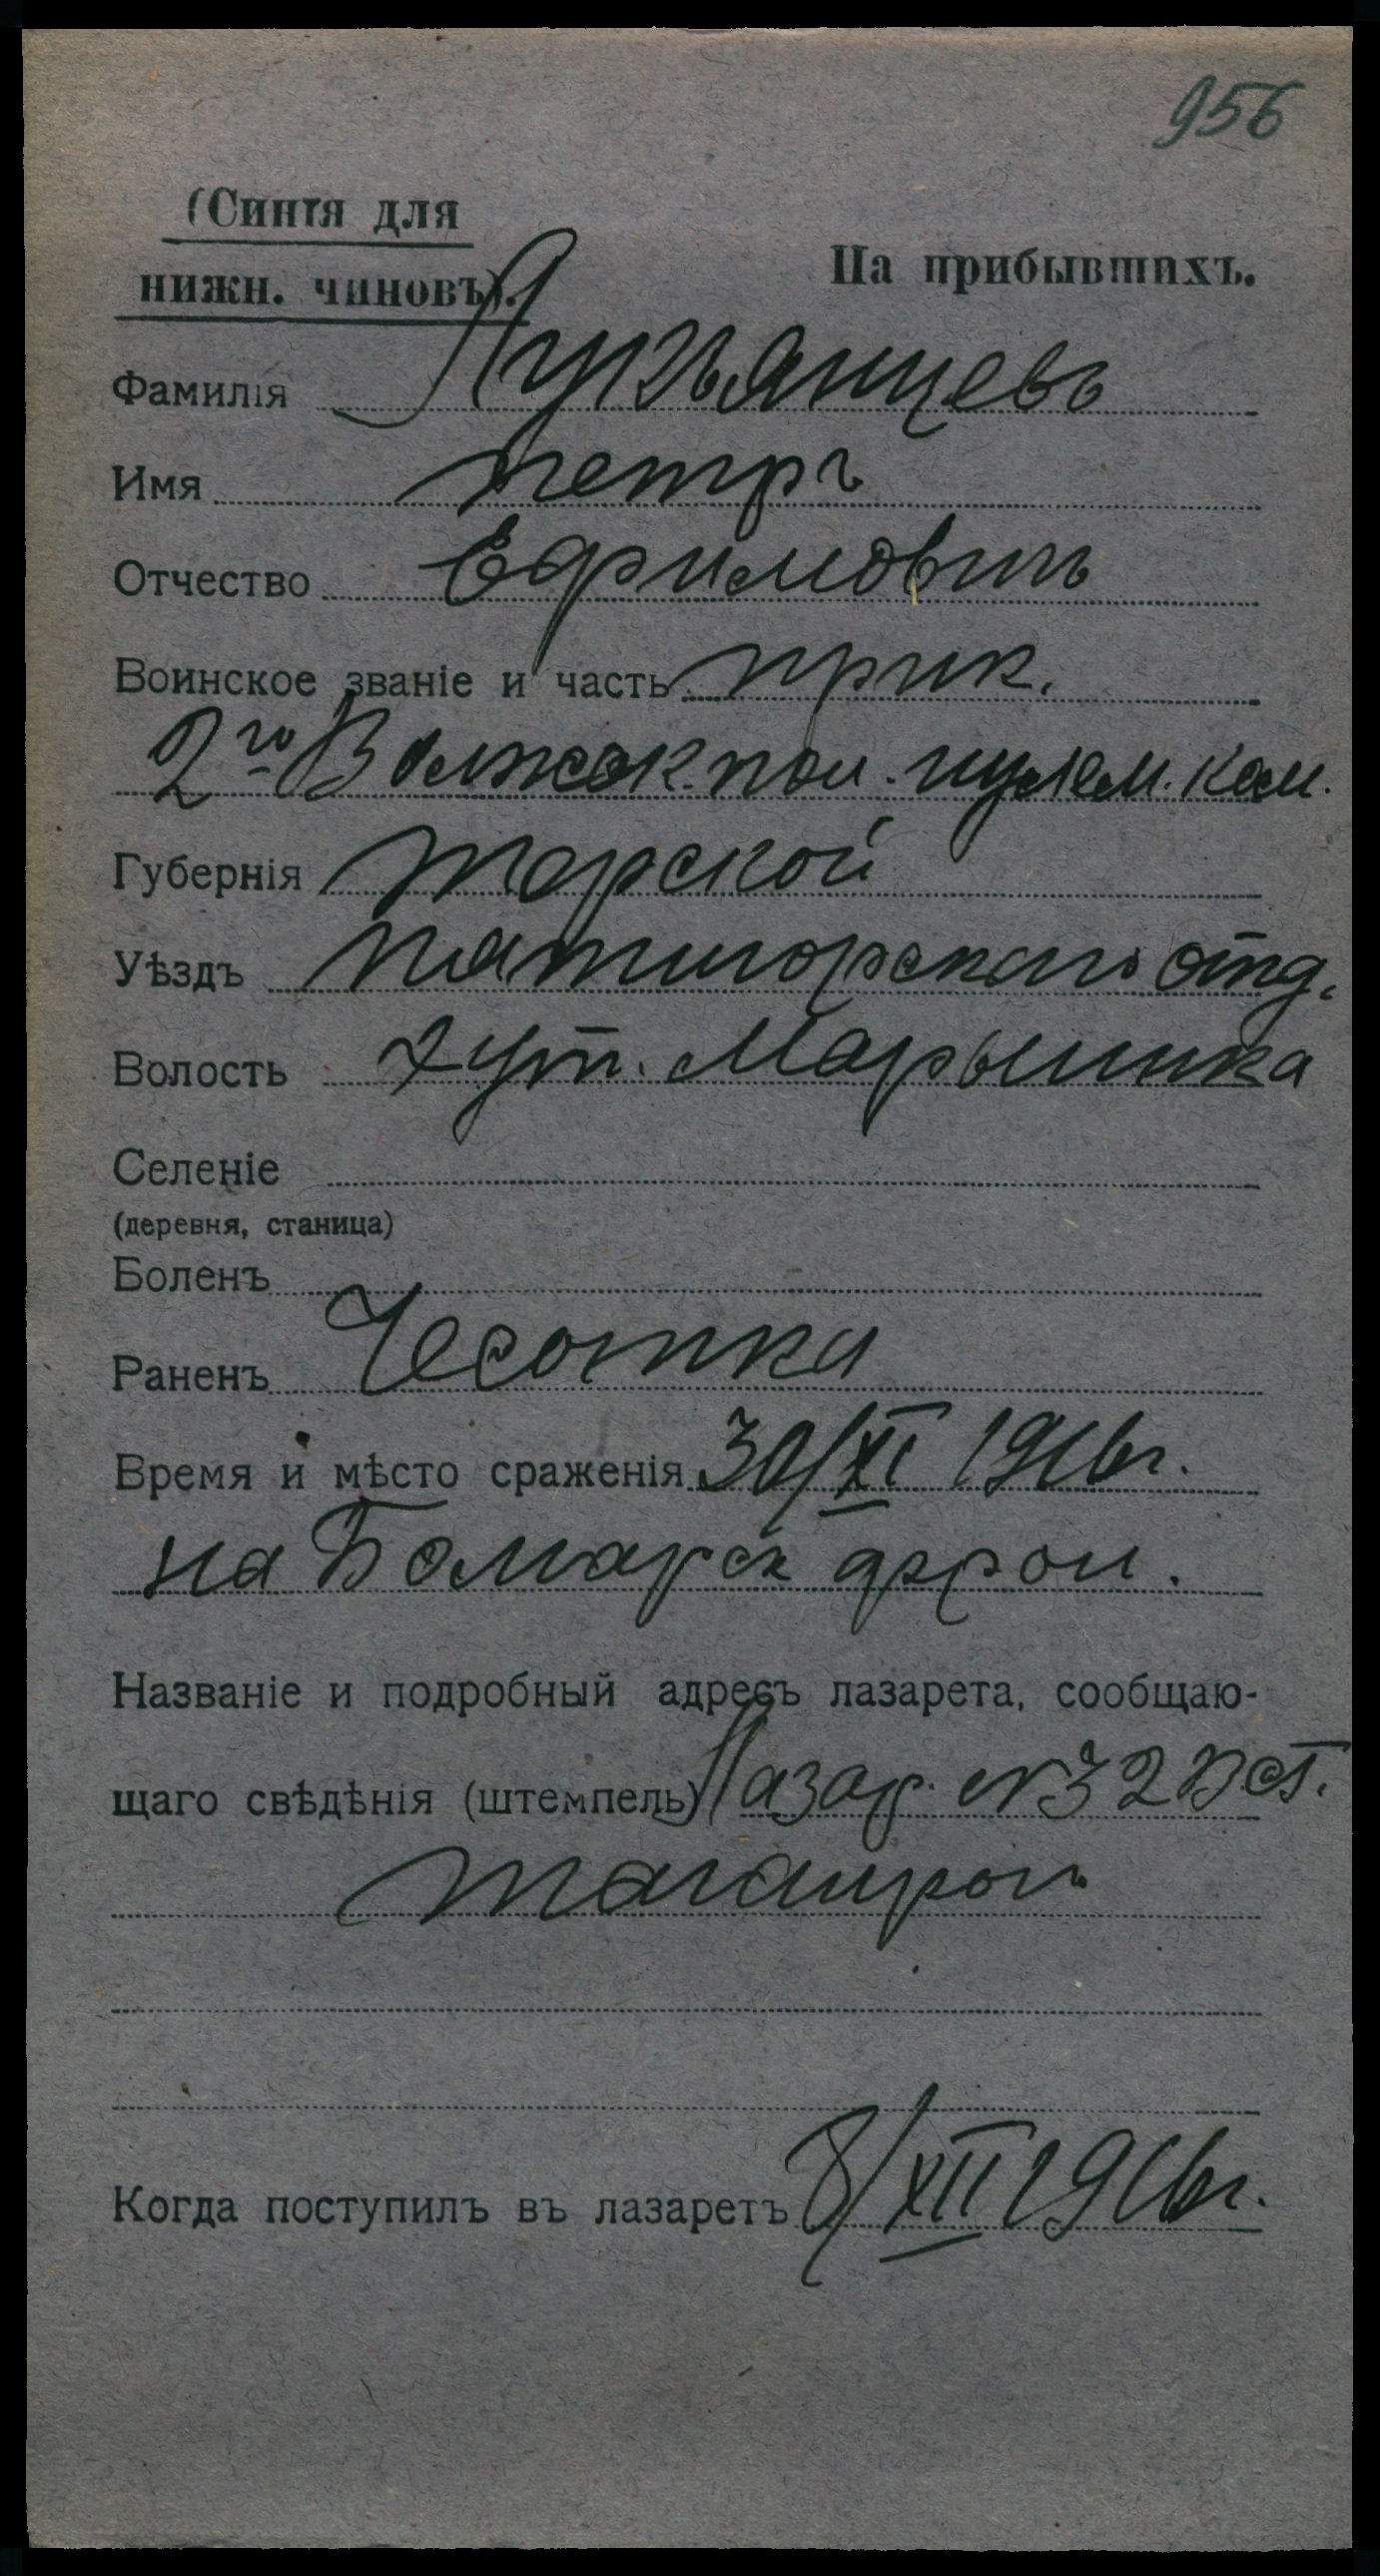 956
(Синія для
нижн. чиновъ).
На прибывшихъ.
Фамилія Лукьянцевъ
Имя Петръ
Отчество Ефимовичъ
Воинское званіе и часть прик.
2го Волжск пол. пулем. ком.
Губернія Терской
Уѣздъ Пятигорскаго отд.
Волость хут. Марьинка
Селеніе
(деревня, станица)
Боленъ
Раненъ Чесотка
Время и мѣсто сраженія 30/XI 1916 г.
на Болгарск фрон.
Названіе и подробный адресъ лазарета, сообщаю-
щаго свѣдѣнія (штемпель) Лазар. №32 В.С.Г.
Таганрогъ
Когда поступилъ въ лазаретъ 8/XII 1916 г.